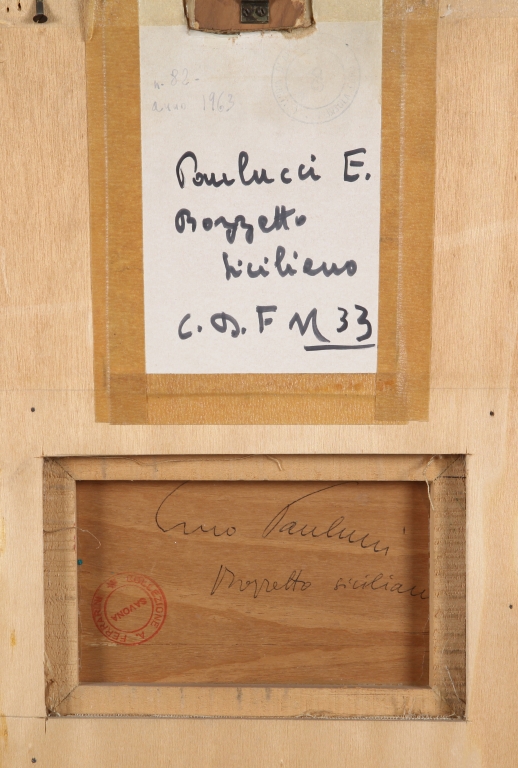 n. 88-
anno 1963
Paulucci E.
Bozzetto
siciliano
C. D. F N 33
Enrico Paulucci
Bozzetto siciliano
COLLEZIONE A. FERRA
SAVONA